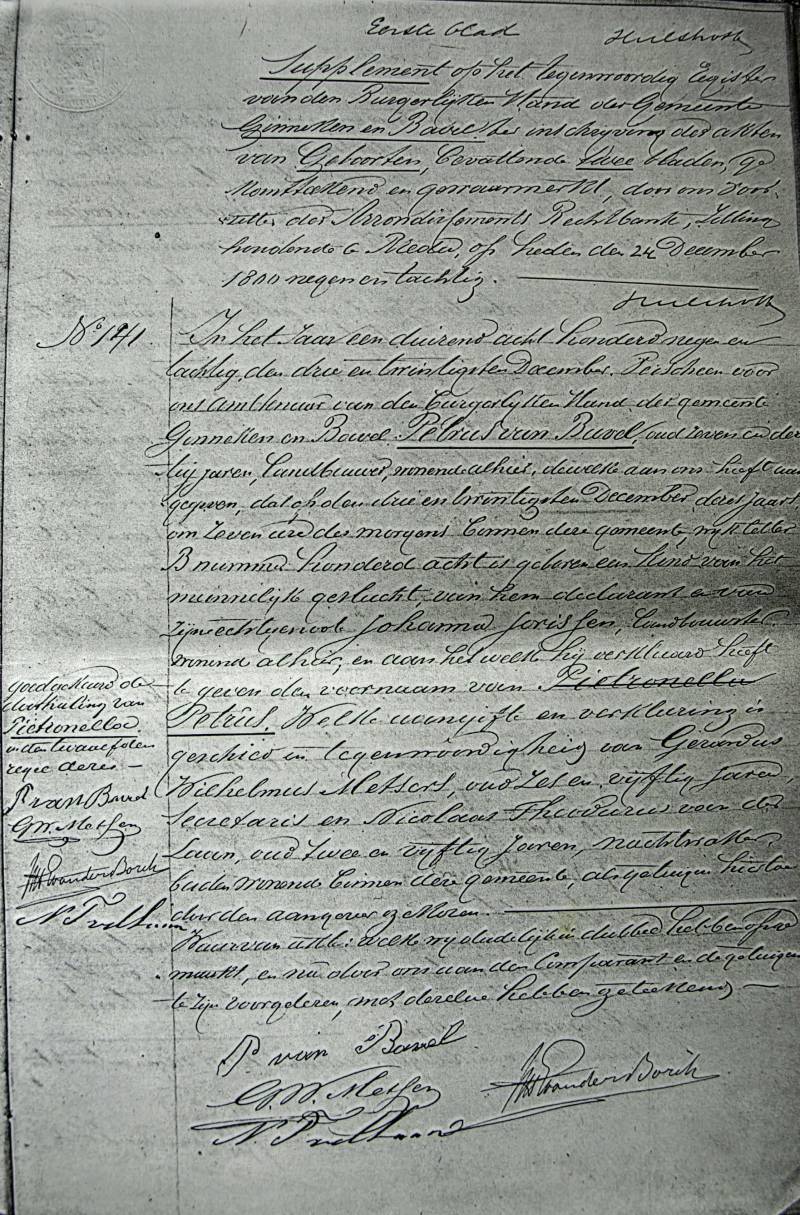 Eerste blad
Hulshoff
Supplement op het tegenwoordig Register
van den Burgerlijken Stand der Gemeente
Ginneken en Bavel ter inschrijving der akten
van Geboorten, bevattende twee bladen, ge
nommerd en gewaarmerkt, door ons Voor-
zitter der Arrondissements Rechtbank, zitting
houdende te Breda, op heden den 24 December
1800 negen en tachtig.
Hulshoff
No 141.
In het Jaar een duizend acht honderd negen en
tachtig, den drie en twintigsten December. Verscheen voor
ons Ambtenaar van den burgerlyken Stand der gemeente
Ginneken en Bavel Petrus van Bavel, oud zeven en der
tig jaren, Landbouwer, wonende alhier, dewelke aan ons heeft aan
gegeven, dat op den drie en twintigsten December dezes jaars,
om zeven ure des morgens binnen deze gemeente, wyk letter
B nummer honderd acht is geboren een kind van het
mannelijk geslacht, van hem declarant en van
zijne echtgenoote Johanna Jorissen, landbouwster
wonend alhier, en aan het welk hij verklaard heeft
te geven den voornaam van Pietronella
Petrus. Welke aangifte en verklaring is
geschied in tegenwoordigheid van Gerardus
Wilhelmus Metsers, oud zes en vyftig Jaren,
Secretaris en Nicolaas Theodorus van der
Laan, oud twee en vyftig Jaren, nachtwaker,
beiden wonende binnen deze gemeente, als getuigen hiertoe
door den aangever gekozen.
Waarvan akte: welke wy dadelijk in dubbel hebben opge
maakt, en na door ons aan den Comparant en de getuigen
te zijn voorgelezen, met dezelve hebben geteekend
goedgekeurd de
doorhaling van
Pietronella
in den twaalfden
regel dezes
P van Bavel
G. W. Metsers
van der Borch
N. T. vd Laan
P van Bavel
G. W. Metsers
van der Borch
N. T. vd Laan